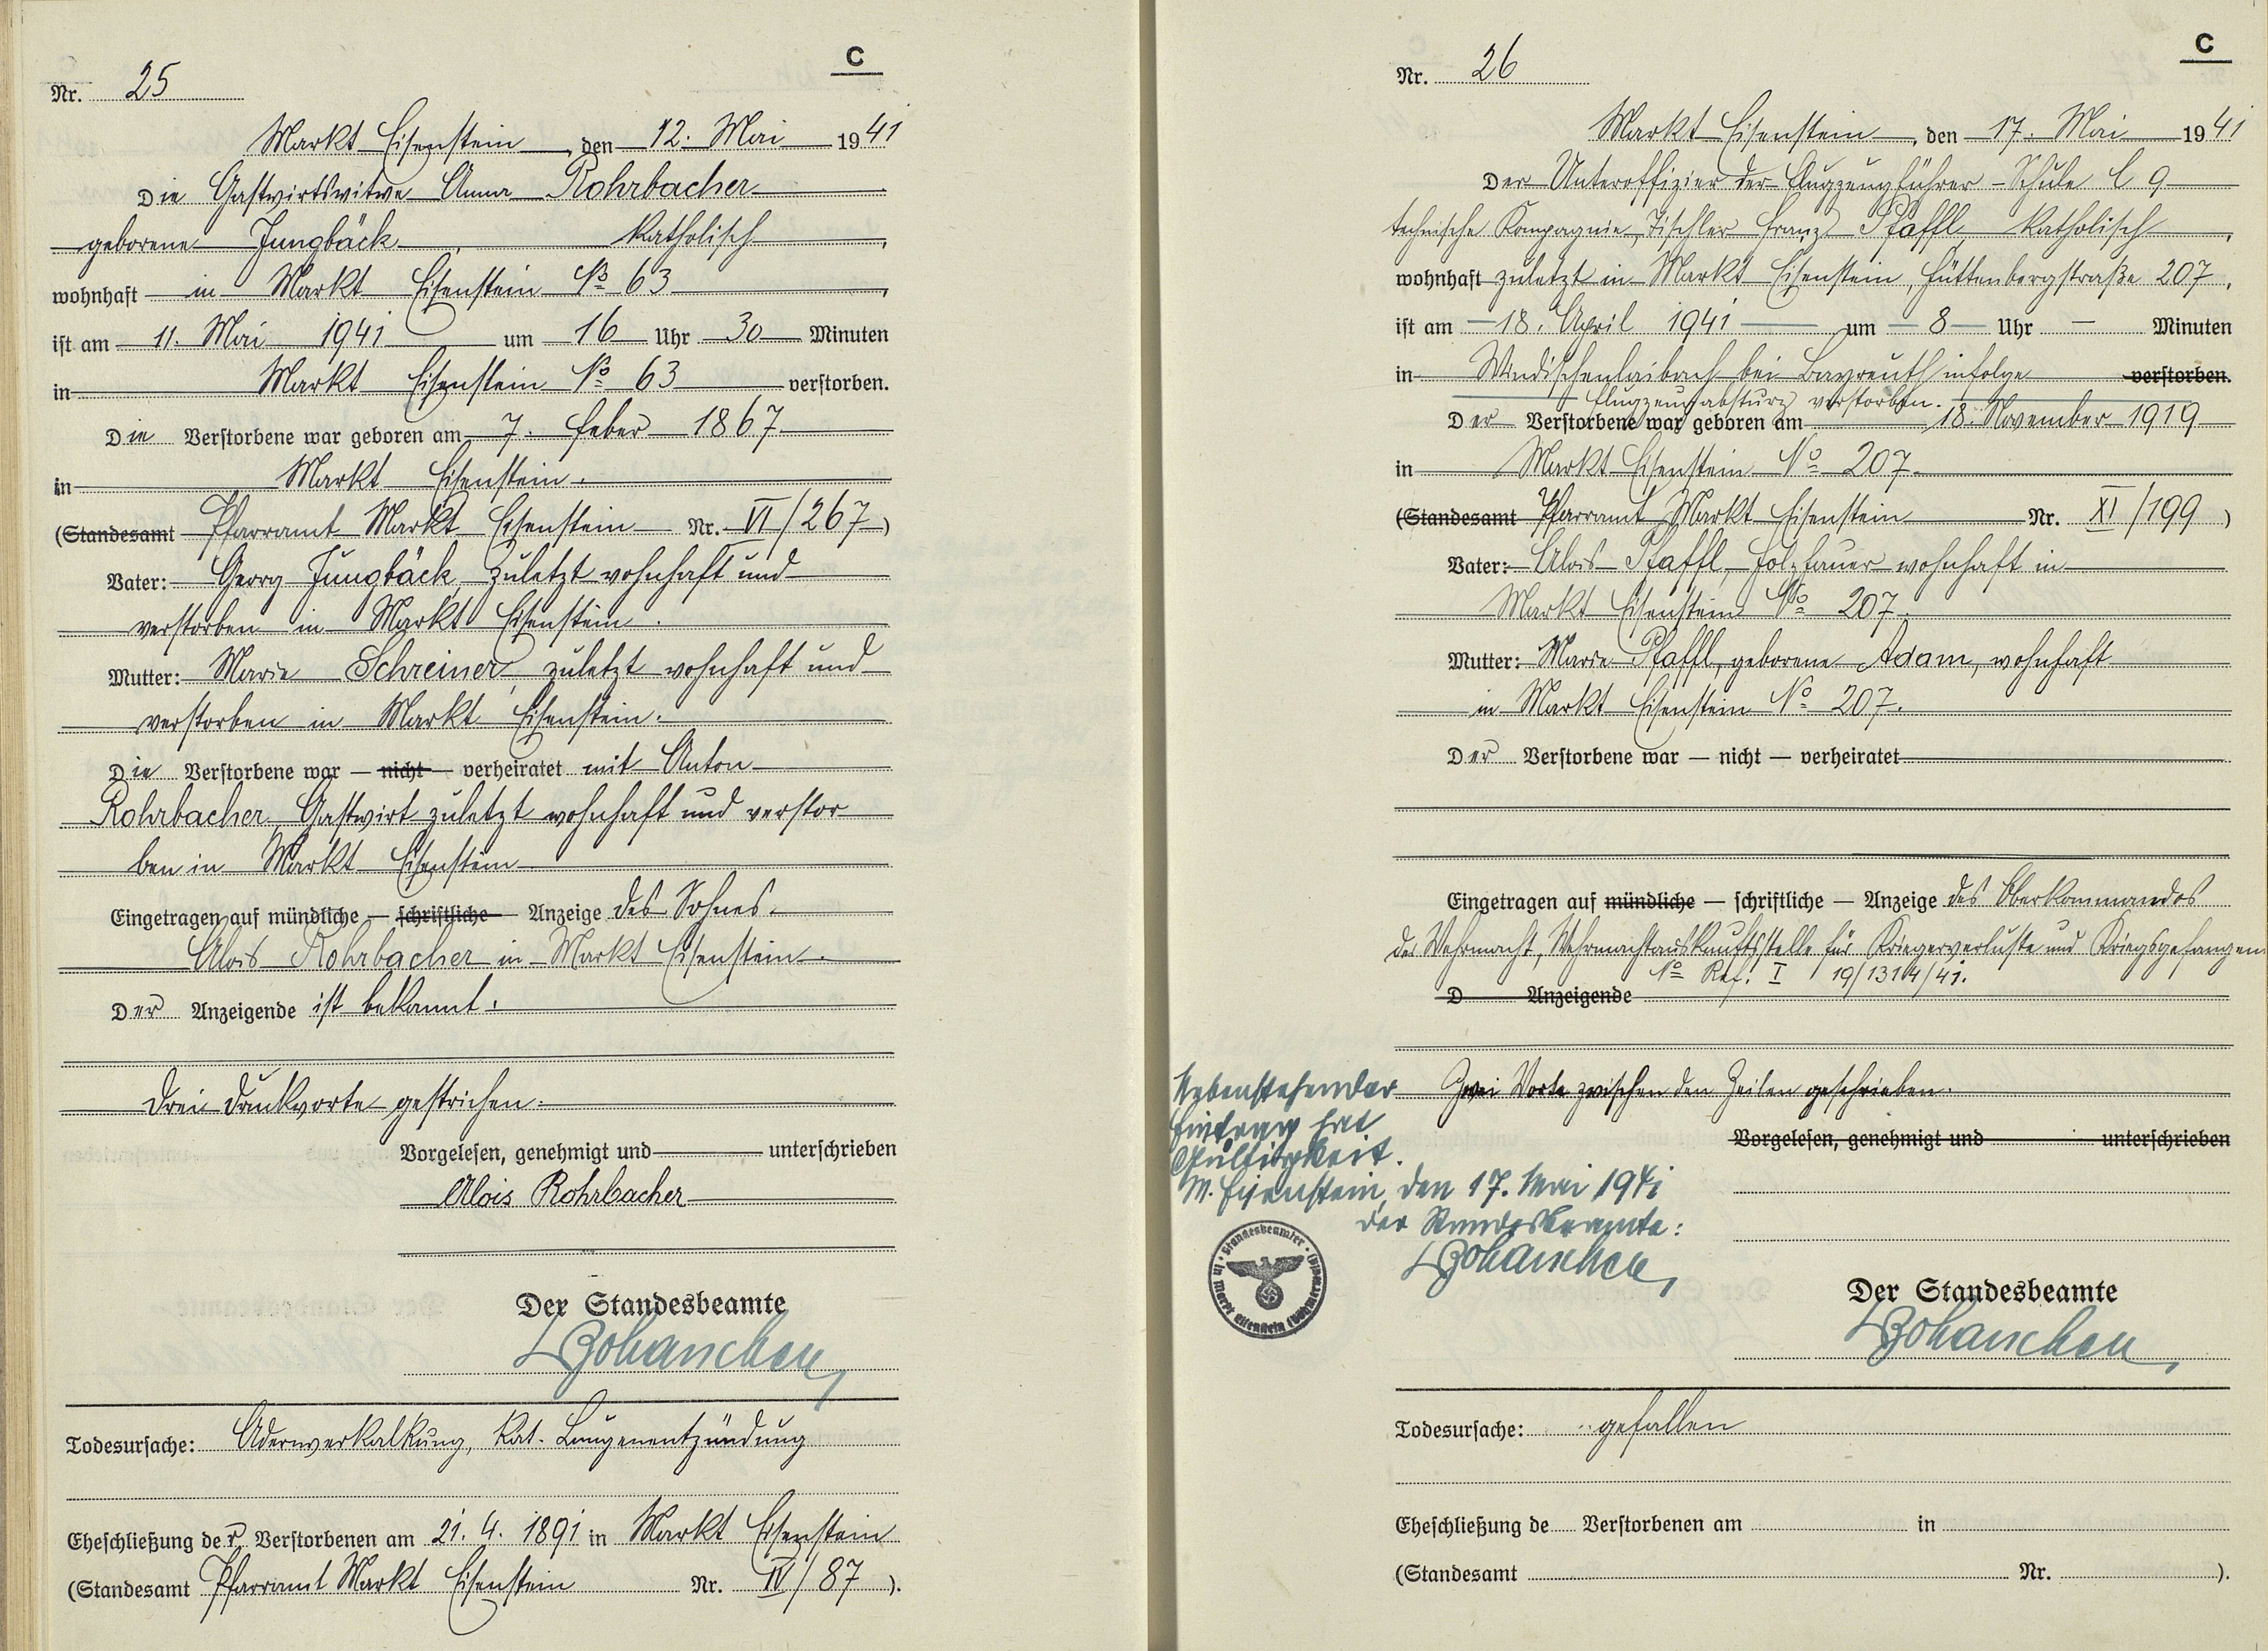 C
Nr. 25
Markt Eisenstein, den 12. Mai 1941
Die Gastwirtswitwe Anna Rohrbacher
geborene Jungbäck, katholisch,
wohnhaft in Markt Eisenstein No 63,
ist am 11. Mai 1941 um 16 Uhr 30 Minuten
in Markt Eisenstein No 63 verstorben.
Die Verstorbene war geboren am 7. Feber 1867
in Markt Eisenstein.
(Standesamt Pfarramt Markt Eisenstein Nr. VI/267)
Vater: Georg Jungbäck, zuletzt wohnhaft und
verstorben in Markt Eisenstein.
Mutter: Marie Schreiner, zuletzt wohnhaft und
verstorben in Markt Eisenstein.
Die Verstorbene war — nicht — verheiratet mit Anton
Rohrbacher, Gastwirt zuletzt wohnhaft und verstor
ben in Markt Eisenstein
Eingetragen auf mündliche — schriftliche — Anzeige des Sohnes
Alois Rohrbacher in Markt Eisenstein.
Der Anzeigende ist bekannt.
Drei Druckworte gestrichen.
Vorgelesen, genehmigt und unterschrieben
Alois Rohrbacher
Der Standesbeamte
Todesursache: Adernverkalkung, kat. Lungenentzündung
Eheschließung der Verstorbenen am 21. 4. 1891 in Markt Eisenstein
(Standesamt Pfarramt Markt Eisenstein Nr. IV/87).
C
Nr. 26
Markt Eisenstein, den 17. Mai 1941
Der Unteroffizier der Flugzeugführer-Schule C 9
technische Kompagnie, Tischler Franz Pfaffl, katholisch,
wohnhaft zuletzt in Markt Eisenstein, Hüttenbergstraße 207,
ist am 18. April 1941 um 8 Uhr — Minuten
in Windischenlaibach bei Bayreuth infolge verstorben.
Flugzeugabsturz verstorben.
Der Verstorbene war geboren am 18. November 1919
in Markt Eisenstein No 207.
(Standesamt Pfarramt Markt Eisenstein Nr. XI/199)
Vater: Alois Pfaffl, Holzhauer wohnhaft in
Markt Eisenstein No 207.
Mutter: Marie Pfaffl, geborene Adam, wohnhaft
in Markt Eisenstein No 207.
Der Verstorbene war — nicht — verheiratet
Eingetragen auf mündliche — schriftliche — Anzeige des Oberkommandos
der Wehrmacht, Wehrmachtauskunftsstelle für Kriegerverluste und Kriegsgefangen
No Ref. I 19/1314/41.
D Anzeigende
Zwei Worte zwischen den Zeilen geschrieben.
Vorgelesen, genehmigt und unterschrieben
Nebenstehender
Eintrag hat
Gültigkeit.
M. Eisenstein, den 17. Mai 1941
Der Standesbeamte:
Standesbeamter
in Markt Eisenstein
Der Standesbeamte
Todesursache: gefallen
Eheschließung de Verstorbenen am in
(Standesamt Nr. ).